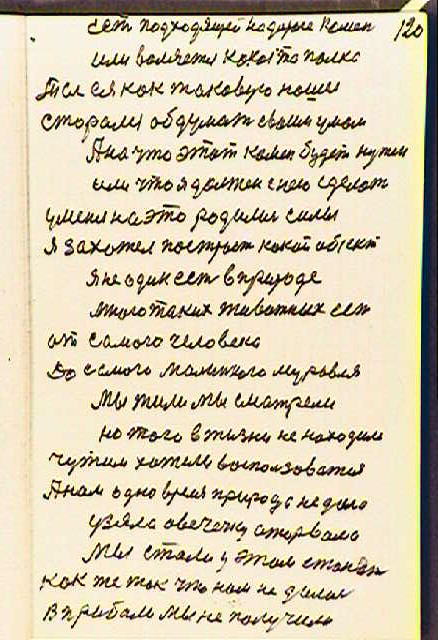 120
есть подходящей на дороге комен
или воляется какоята палка
То ся ея как таковую наши
сторалися обдумат своим умом
А на что этот комен будет нужен
или что я должен с нею сделат
у меня на это родилися силы
я захотел построит какой обiект
я не один есть в природе
много таких животных ест
от самого человека
до самого маленкого муровля
Мы жили мы сматрели
но того в жизни не находили
чужим хотели воспользоватся
А нам одно время природа не дала
узяла овечечку аторвала
Мы стали у этом стоко
как же так что нам не далося
В прибыль мы не получили